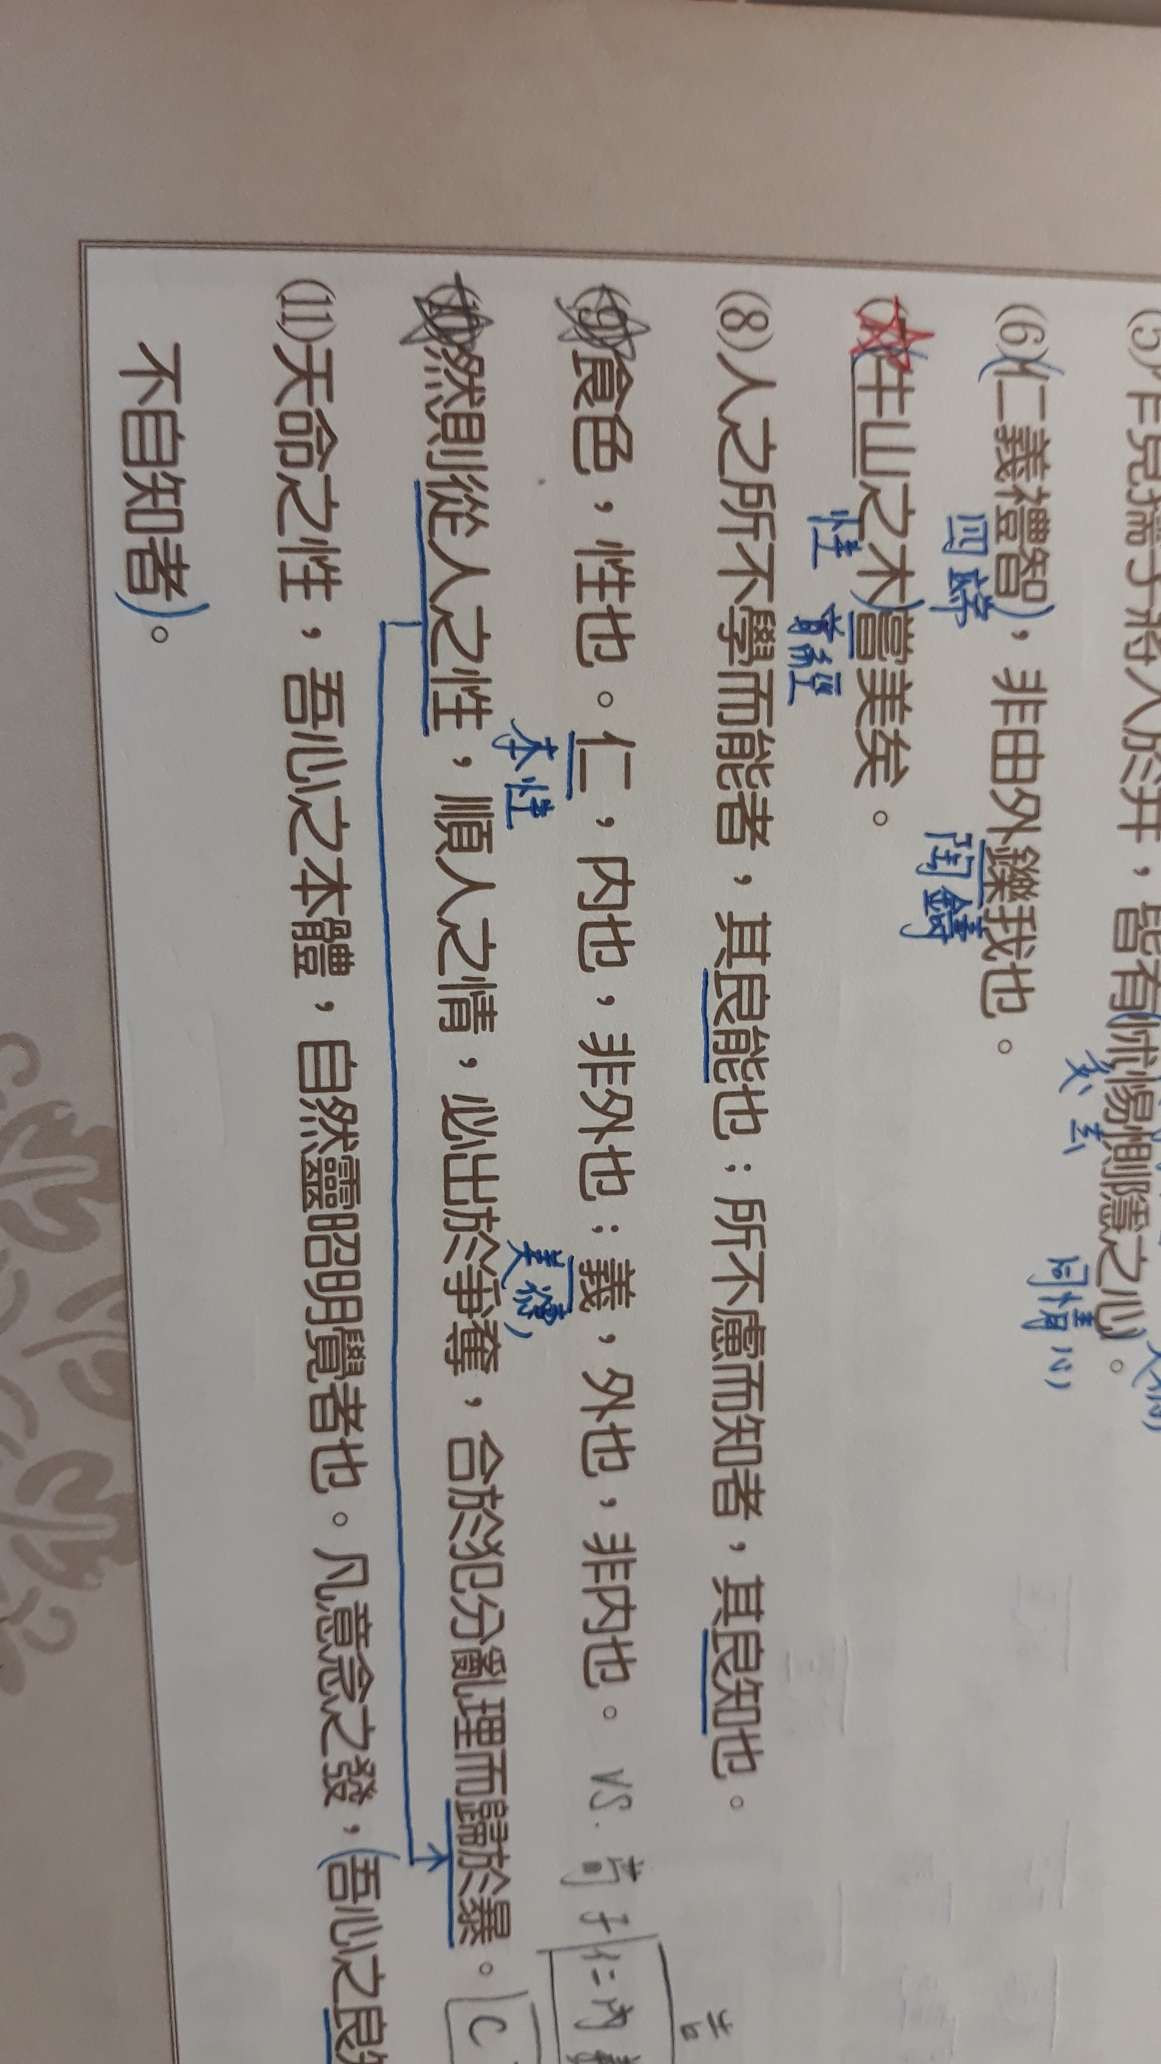 (5)乍見孺子將入於井，皆有(怵惕惻隱之心)。
同情心
(6)(仁義禮智)，非由外鑠我也。
四端
陶鑄
(牛山之木)嘗美矣。
性
曾經
(8)人之所不學而能者，其良能也；所不慮而知者，其良知也。
(9)食色，性也。仁，內也，非外也；義，外也，非內也。 VS. 告子 仁內義
本性
美德
(10)然則從人之性，順人之情，必出於爭奪，合於犯分亂理而歸於暴。 C
(11)天命之性，吾心之本體，自然靈昭明覺者也。凡意念之發，(吾心之良知
不自知者)。